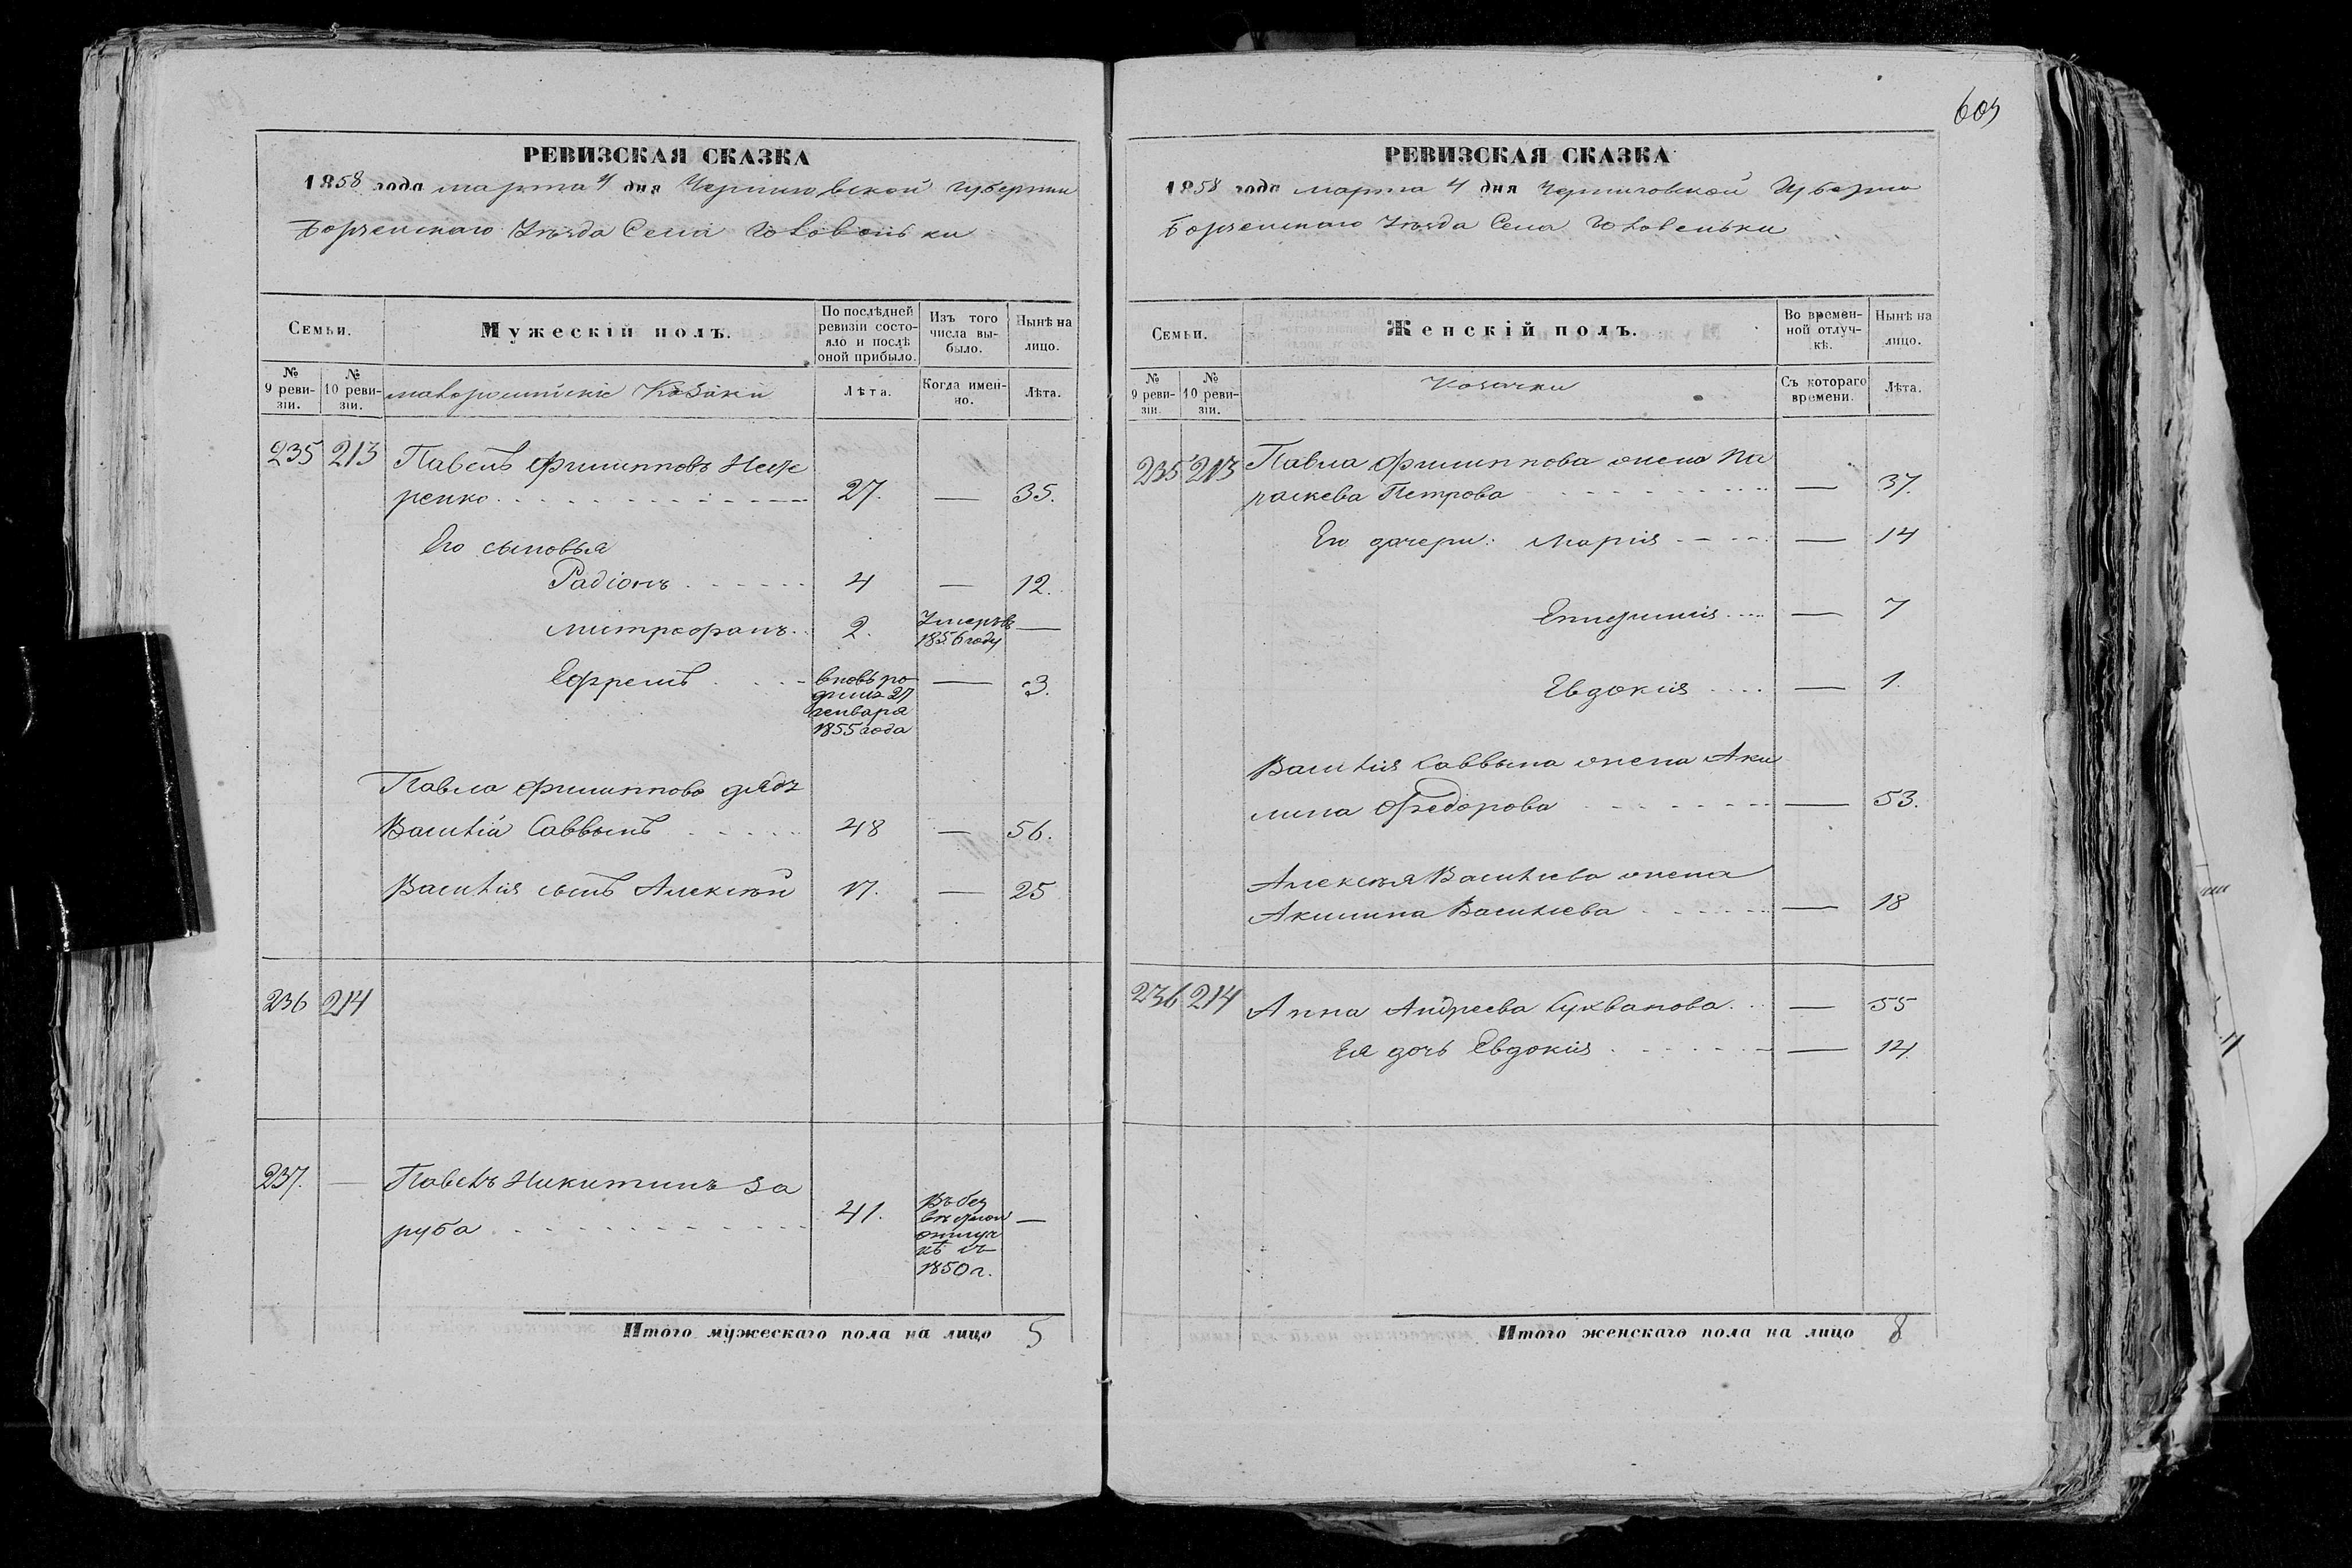 605
РЕВИЗСКАЯ СКАЗКА
1858 года марта 4 дня Черниговской губернии
Борзенскаго Уезда Села Головеньки
Семьи.
Мужескій полъ.
По послѣдней ревизіи состояло и послѣ оной прибыло.
Изъ того числа выбыло.
Нынѣ на лицо.
№ 9 ревизіи.
№ 10 ревизіи.
малороссійскіе Козаки
Лѣта.
Когда именно.
Лѣта.
235 213 Павелъ Филипповъ
ренко 27. — 35.
Его сыновья
Радіонъ 4 — 12.
Митрофанъ 2. Умеръ въ 1856 году —
Ефремъ вновь родился 27 генваря 1855 года — 3.
Павла Филиппова дядя
Василій Саввинъ 48 — 56.
Василія сынъ Алексѣй 17. — 25
236 214
237. — Павелъ Никитинъ За
руба 41. Въ безвѣстной отлучкѣ съ 1850 г. —
Итого мужескаго пола на лицо 5
РЕВИЗСКАЯ СКАЗКА
1858 года марта 4 дня Черниговской Губерніи
Борзенскаго Уезда Села Головеньки
Семьи.
Женскій полъ.
Во временной отлучкѣ.
Нынѣ на лицо.
№ 9 ревизіи.
№ 10 ревизіи.
Козачки
Съ котораго времени.
Лѣта.
235 213 Павла Филиппова жена Па
раскева Петрова — 37.
Его дочери: Марія — 14
— 7
Евдокія — 1.
Василія Саввина жена Аки
лина Федорова — 53.
Алексѣя Васильева жена
Акилина Васильева — 18
236 214 Анна Андреева — 55
Ея дочь Евдокія — 14
Итого женскаго пола на лицо 8